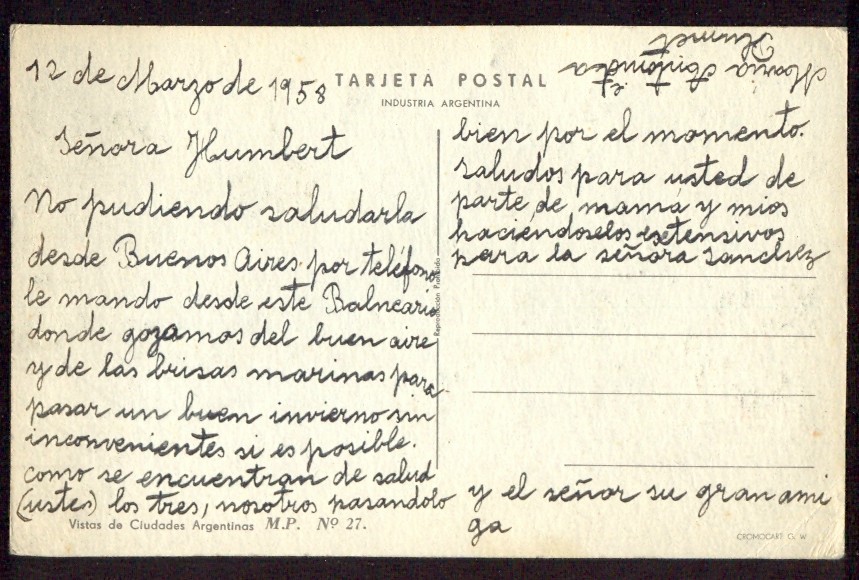 12 de Marzo de 1958
TARJETA POSTAL
INDUSTRIA ARGENTINA
Señora Humbert
No pudiendo saludarla
desde Buenos Aires por teléfono
le mando desde este Balneario
donde gozamos del buen aire
y de las brisas marinas para
pasar un buen invierno sin
inconvenientes si es posible.
como se encuentran de salud
(ustes) los tres, nosotros pasandolo
bien por el momento.
saludos para usted de
parte de mamá y mios
haciendoselos extensivos
para la señora Sanchez
y el señor su gran ami
ga
Maria Antonieta
Reproducción Prohibida
Vistas de Ciudades Argentinas M.P. Nº 27.
CROMOCART G. W